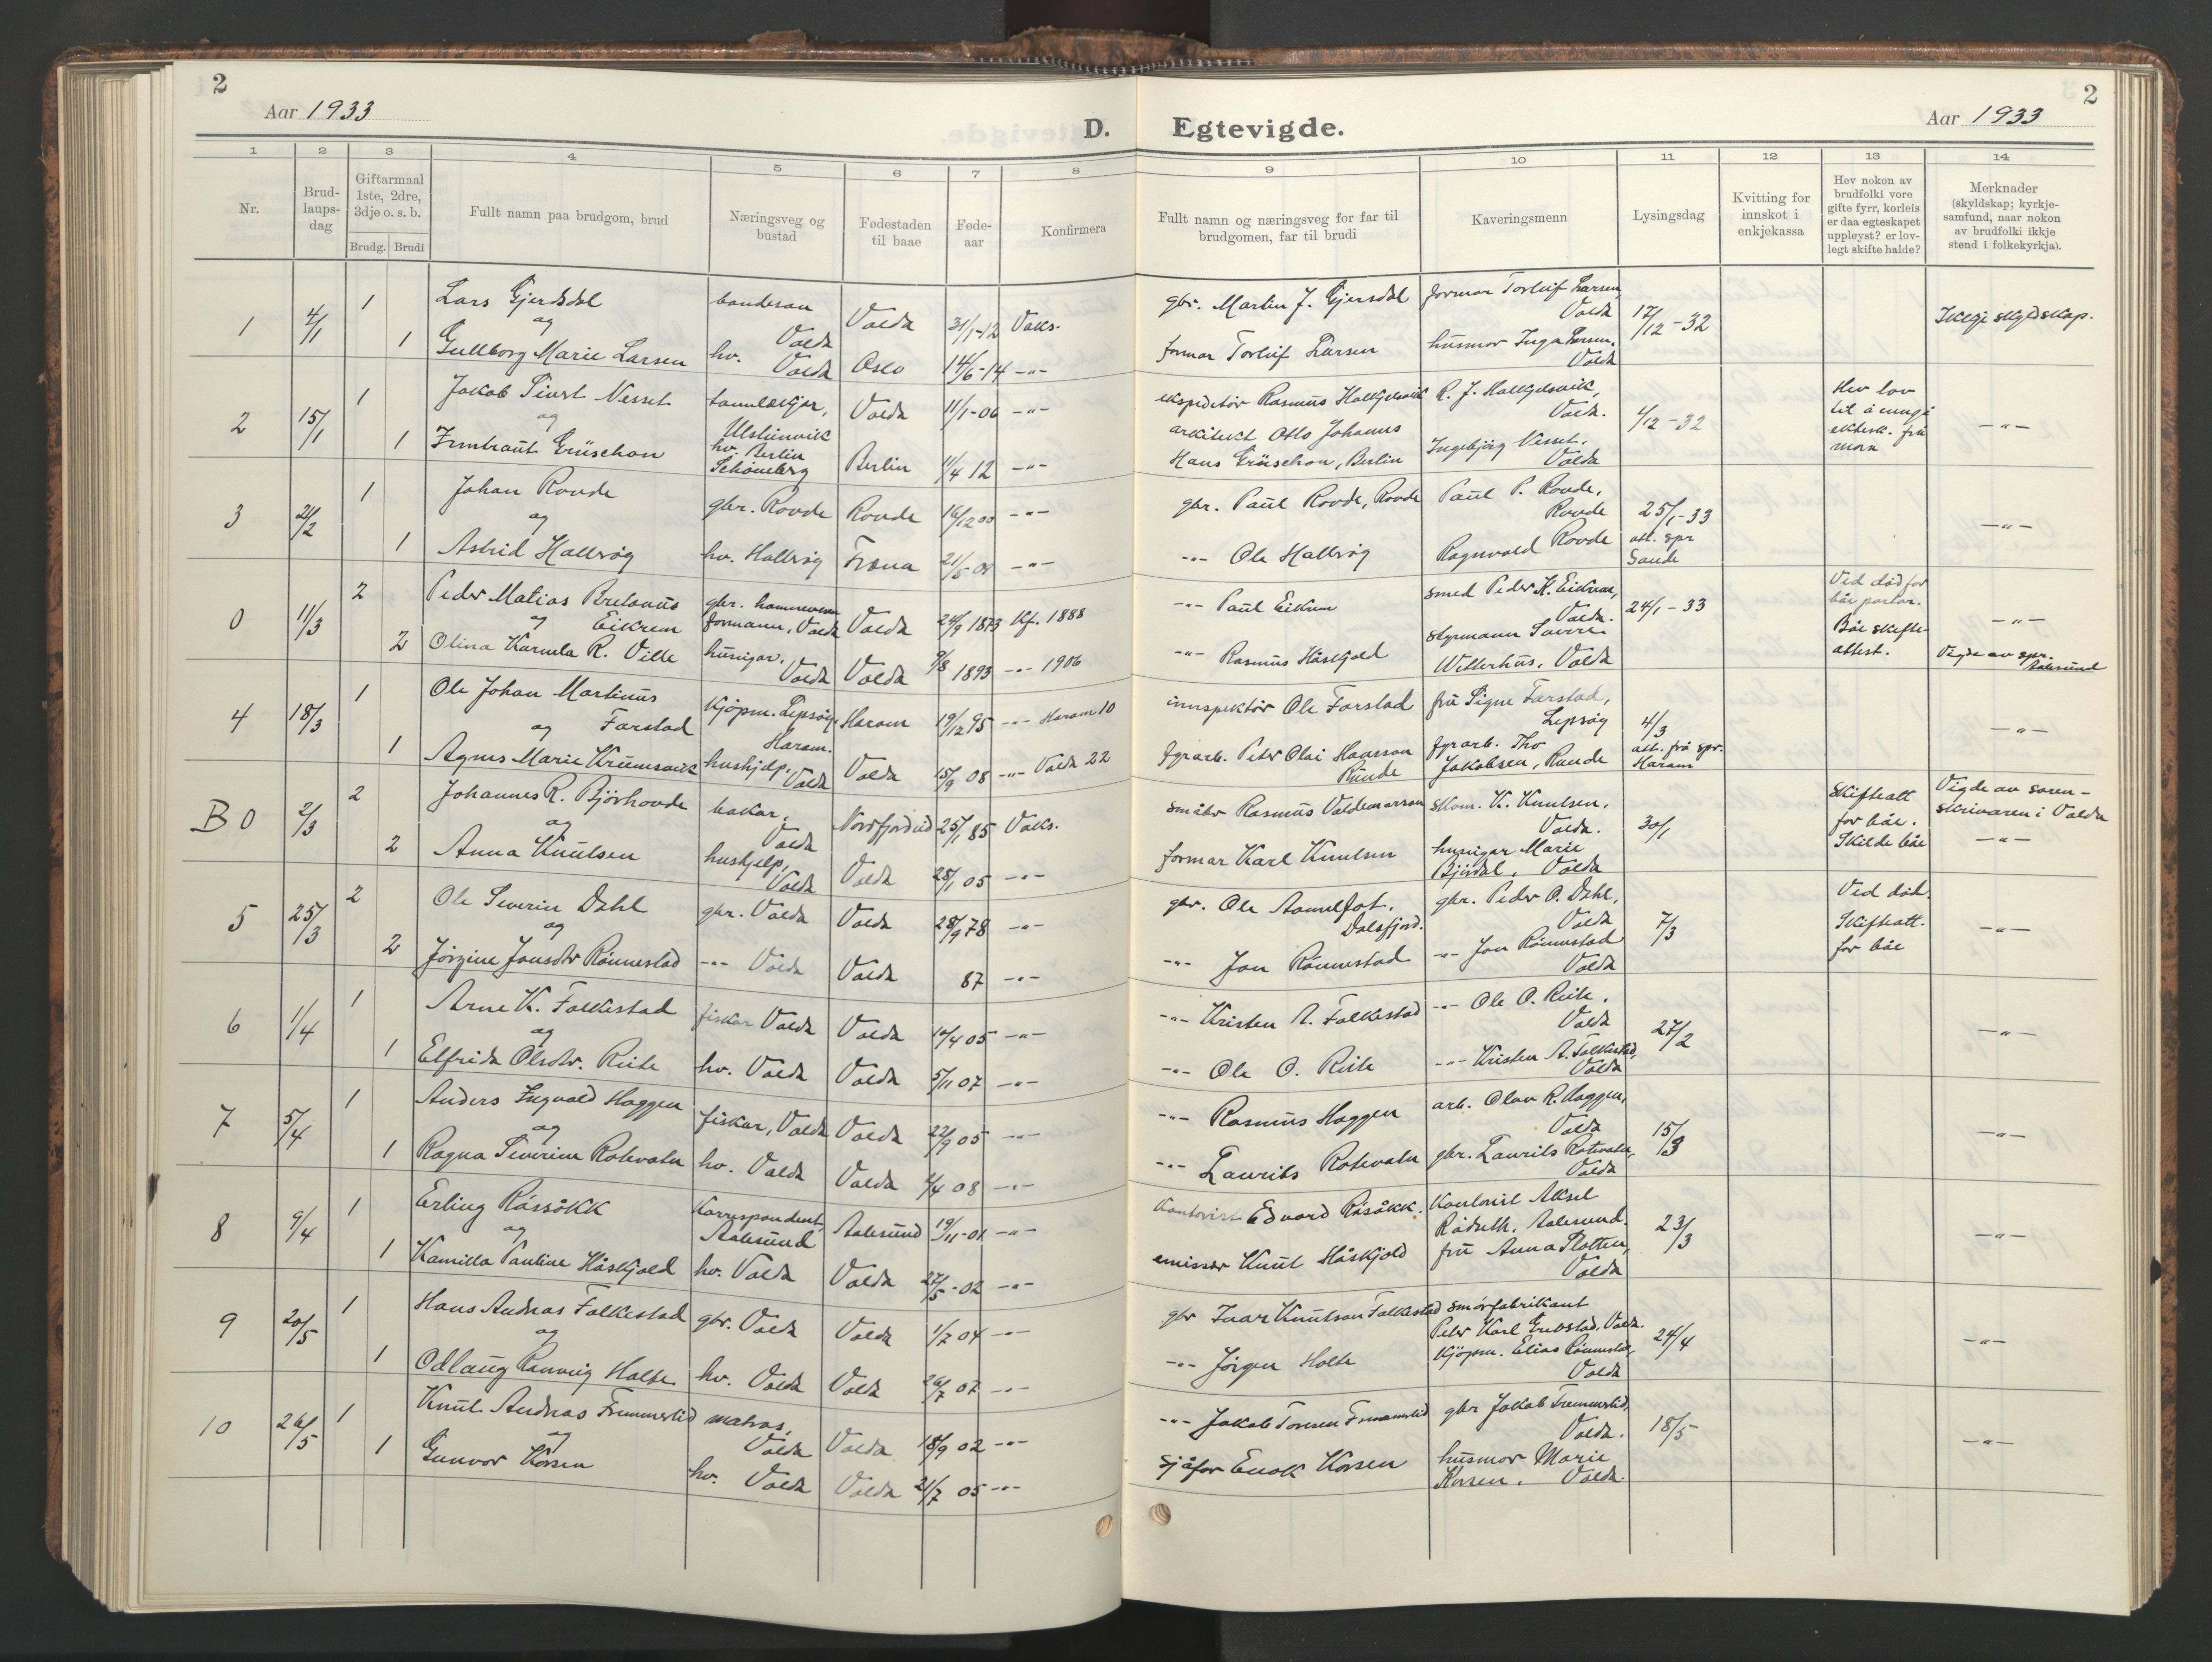 2
Aar 1933
D. Egtevigde.
Aar 1933
2
1 2 3 4 5 6 7 8 9 10 11 12 13 14
Nr.
Brud-
laups-
dag
Giftarmaal
1ste, 2dre,
3dje o. s. b.
Brudg. Brudi
Fullt namn paa brudgom, brud
Næringsveg og
bustad
Fødestaden
til baae
Føde-
aar
Konfirmera
Fullt namn og næringsveg for far til
brudgomen, far til brudi
Kaveringsmenn
Lysingsdag
Kvitting for
innskot i
enkjekassa
Hev nokon av
brudfolki vore
gifte fyrr, korleis
er daa egteskapet
uppløyst? er lov-
legt skifte halde?
Merknader
(skyldskap; kyrkje-
samfund, naar nokon
av brudfolki ikkje
stend i folkekyrkja).
1 4/1 1 Lars Gjerdsdal bondeson Volda Volda 31/1-12 Vaks. gbr. Martin J. Gjersdal formar Torleif Larsen, Volda 17/12-32 Ikkje skyldskap.
og
1 Gullborg Marie Larsen hv. Volda Oslo 14/6-14 -"- formar Torleif Larsen husmor Inga Larsen. Volda
2 15/1 1 Jakob Sivert Nesset tannlækjar, Ulsteinvik Volda 11/1-06 -"- ekspeditør Rasmus Hallkjelsvik R. J. Hallkjelsvik, Volda. 4/12-32 Hev lov -"-
og
1 Irmtraut Grüschon hv. Berlin Schöneberg Berlin 11/4 12 -"- arkitekt Otto Johannes Hans Grüschon, Berlin Ingebjørg Nesset. Volda
3 21/2 1 Johan Rovde gbr. Rovde Rovde 16/12 00 -"- gbr. Paul Rovde, Rovde Paul P. Rovde, Rovde 25/1-33 -"-
og
1 Astrid Hallrøg hv. Hallrøg Fræna 21/5 08 -"- -"- Ole Hallrøg Ragnvald Rovde att. spr Sande
0 11/3 2 Peder Matias Bretanus Eikrem formann, Volda Volda 24/9 1873 Kf. 1888 -"- Paul Eikrem smed Peder K. Eikrem, Volda. 24/1-33 Ved död for båe partar. -"-
og
2 Olina Karnela R. Ville husigar, Volda Volda 9/8 1893 -"- 1906 -"- Rasmus Håskjold styrmann Sverre Witterhus, Volda Båe skifte-attest. Vigde av spr. Aalesund
4 18/3 1 Ole Johan Martinus Farstad kjöpm. Lepsøy, Haram. Haram 19/12 95 -"- Haram 10 innspektör Ole Farstad fru Signe Farstad, Lepsøy 4/3 -"-
og
1 Agnes Marie Krumsvik hushjelp, Volda Volda 15/9 08 -"- Volda 22 fyrarb. Peter Olai Hansson Runde fyrarb. Tho Jakobsen, Runde att. frå spr. Haram
B 0 2/3 2 Johannes R. Bjørhovde bakar, Volda Nordfjordeid 25/1 85 Vaks. småbr Rasmus Valdemarson skom. K. Knutsen, Volda. 30/1 Skifteatt for båe. Vigde av soren-skrivaren i Volda
og
2 Anna Knutsen hushjelp, Volda Volda 28/1 05 -"- formar Karl Knutsen husigar Marie Bjørdal, Volda Skilde båe -"-
5 25/3 2 Ole Severin Dahl gbr. Volda Volda 28/9 78 -"- gbr. Ole Aamelfot, Dalsfjord. gbr. Peder O. Dahl, Volda 7/3 Ved död. -"-
og
2 Jørgine Jonsdtr Rönnestad -"- Volda Volda 87 -"- -"- Jon Rönnestad -"- Jon Rönnestad Volda Skifteatt. for båe
6 1/4 1 Arne K. Folkestad fiskar Volda Volda 10/4 05 -"- -"- Kristen A. Folkestad -"- Ole O. Reite, Volda 27/2 -"-
og
1 Elfrida Olsdtr. Reite hv. Volda Volda 5/11 07 -"- -"- Ole O. Reite -"- Kristen A. Folkestad, Volda
7 5/4 1 Anders Ingvald Haggen fiskar, Volda Volda 22/9 05 -"- -"- Rasmus Haggen arb. Olav R. Haggen, Volda 15/3 -"-
og
1 Ragna Severine Rotevatn hv. Volda Volda 4/4 08 -"- -"- Laurits Rotevatn gbr. Laurits Rotevatn, Volda
8 9/4 1 Erling Råssåkk Korrespondent, Aalesund Aalesund 19/11-01 -"- Kontorist Edvard Råsåkk. Kontorist Aksel Rådseth, Aalesund. 23/3 -"-
og
1 Kamilla Pauline Håskjold hv. Volda Volda 27/5-02 -"- emissær Knut Håskjold fru Anna Slotten, Volda
9 20/5 1 Hans Andreas Folkestad gbr. Volda Volda 1/7 04 -"- gbr Ivar Knutson Folkestad smörfabrikant Peter Karl Grebstad, Volda. 24/4 -"-
og
1 Odlaug Ranveig Holte hv. Volda Volda 26/7 07 -"- -"- Jørgen Holte kjöpm. Elias Rönnestad, Volda
10 26/5 1 Knut Andreas Fremmerlid matros, Volda Volda 18/9 02 -"- -"- Jakob Toresen Fremmerlid gbr Jakob Fremmerlid, Volda. 18/5 -"-
og
1 Gunvor Korsen hv. Volda Volda 21/7 05 -"- sjåfør Enok Korsen husmor Marie Korsen, Volda.